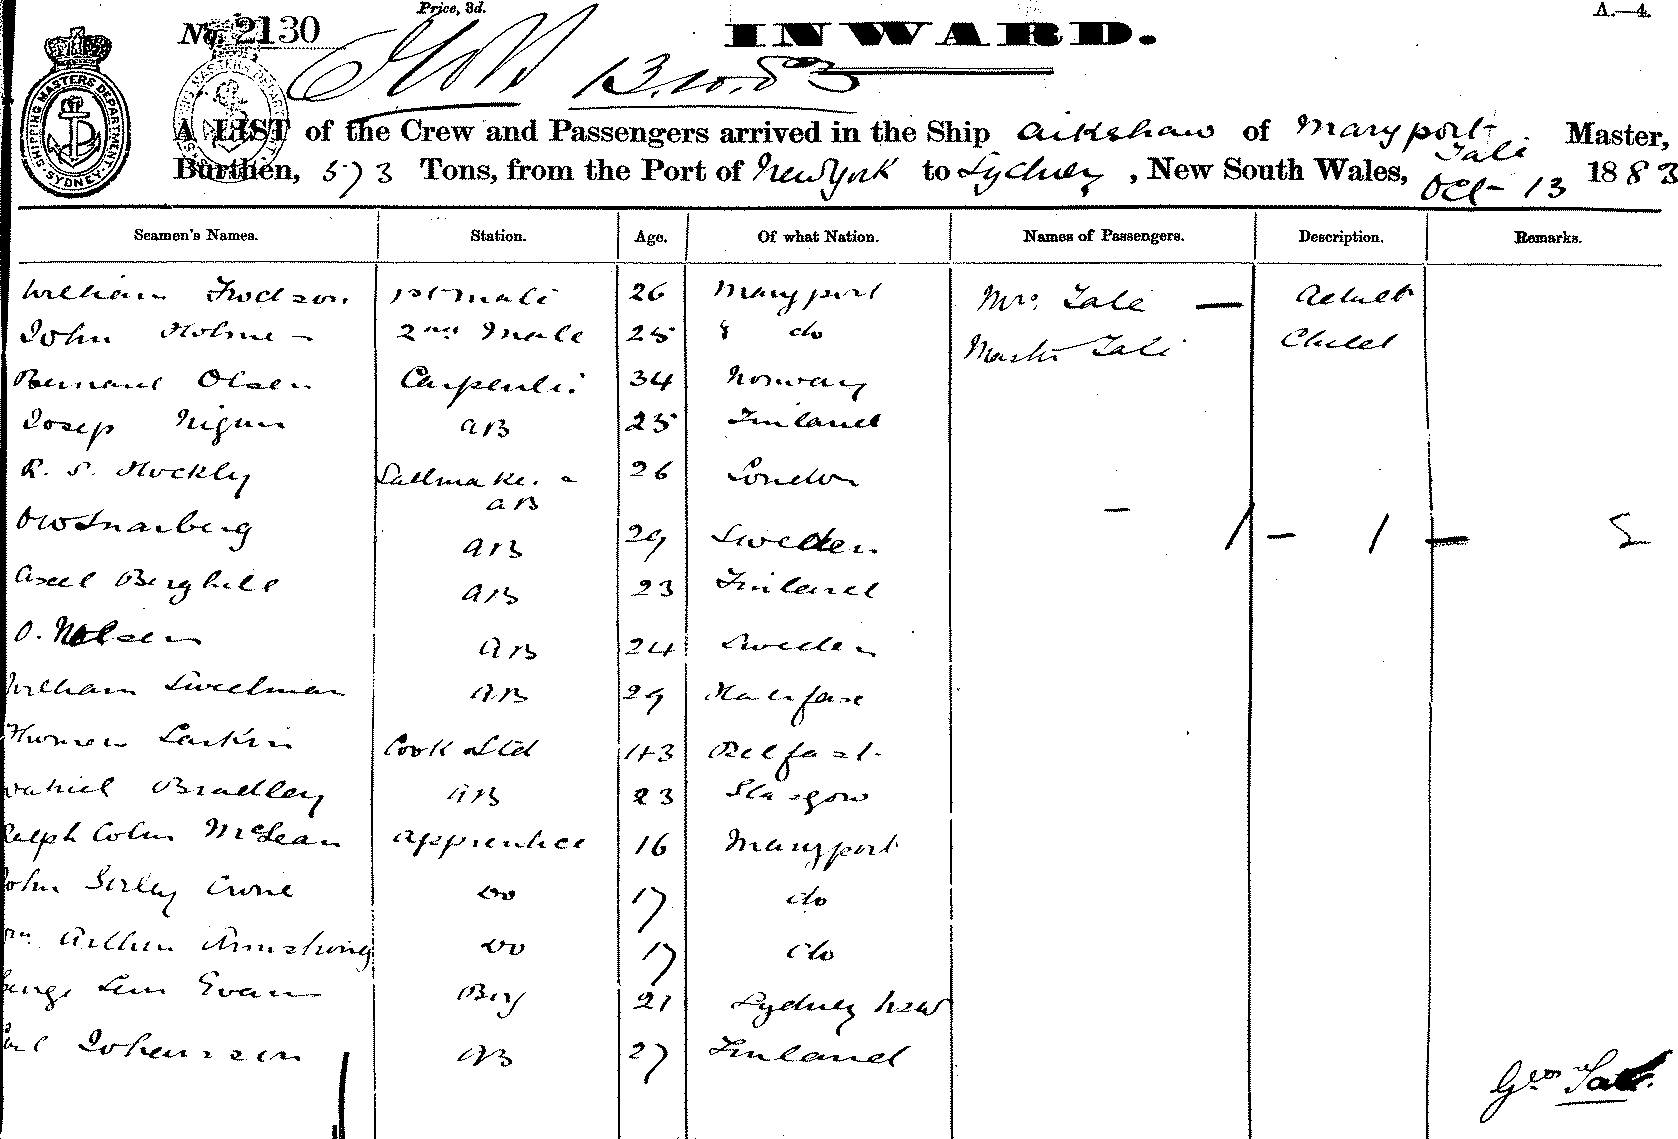 Price, 3d.
A.—4.
No. 2130
INWARD.
13.10.83
SHIPPING MASTERS DEPARTMENT SYDNEY
A LIST of the Crew and Passengers arrived in the Ship Aikshaw of Maryport Master,
Burthen, 573 Tons, from the Port of New York to Sydney, New South Wales, Oct 13 1883
Seamen's Names. Station. Age. Of what Nation. Names of Passengers. Description. Remarks.
William 1st Mate 26 Maryport Mrs. Tate — Adult
John Holme 2nd Mate 25 do Master Tate Child
Bernard Olsen Carpenter 34 Norway
Josep AB 25 Finland
R. S. Hockly Sailmaker & 26 London
AB
AB 29 Sweden — 1 — 1 — 2
Axel AB 23 Finland
O. AB 24 Sweden
William Sweetman AB 29 Halifax
Thomas Larkin Cook & Std 43 Belfast
Bradley AB 23 Glasgow
Ralph Colin McLean Apprentice 16 Maryport
John Crone Do 17 do
Wm Arthur Armstrong Do 17 do
Evans Boy 21 Sydney NSW
Johansson AB 27 Finland
Geo Tate